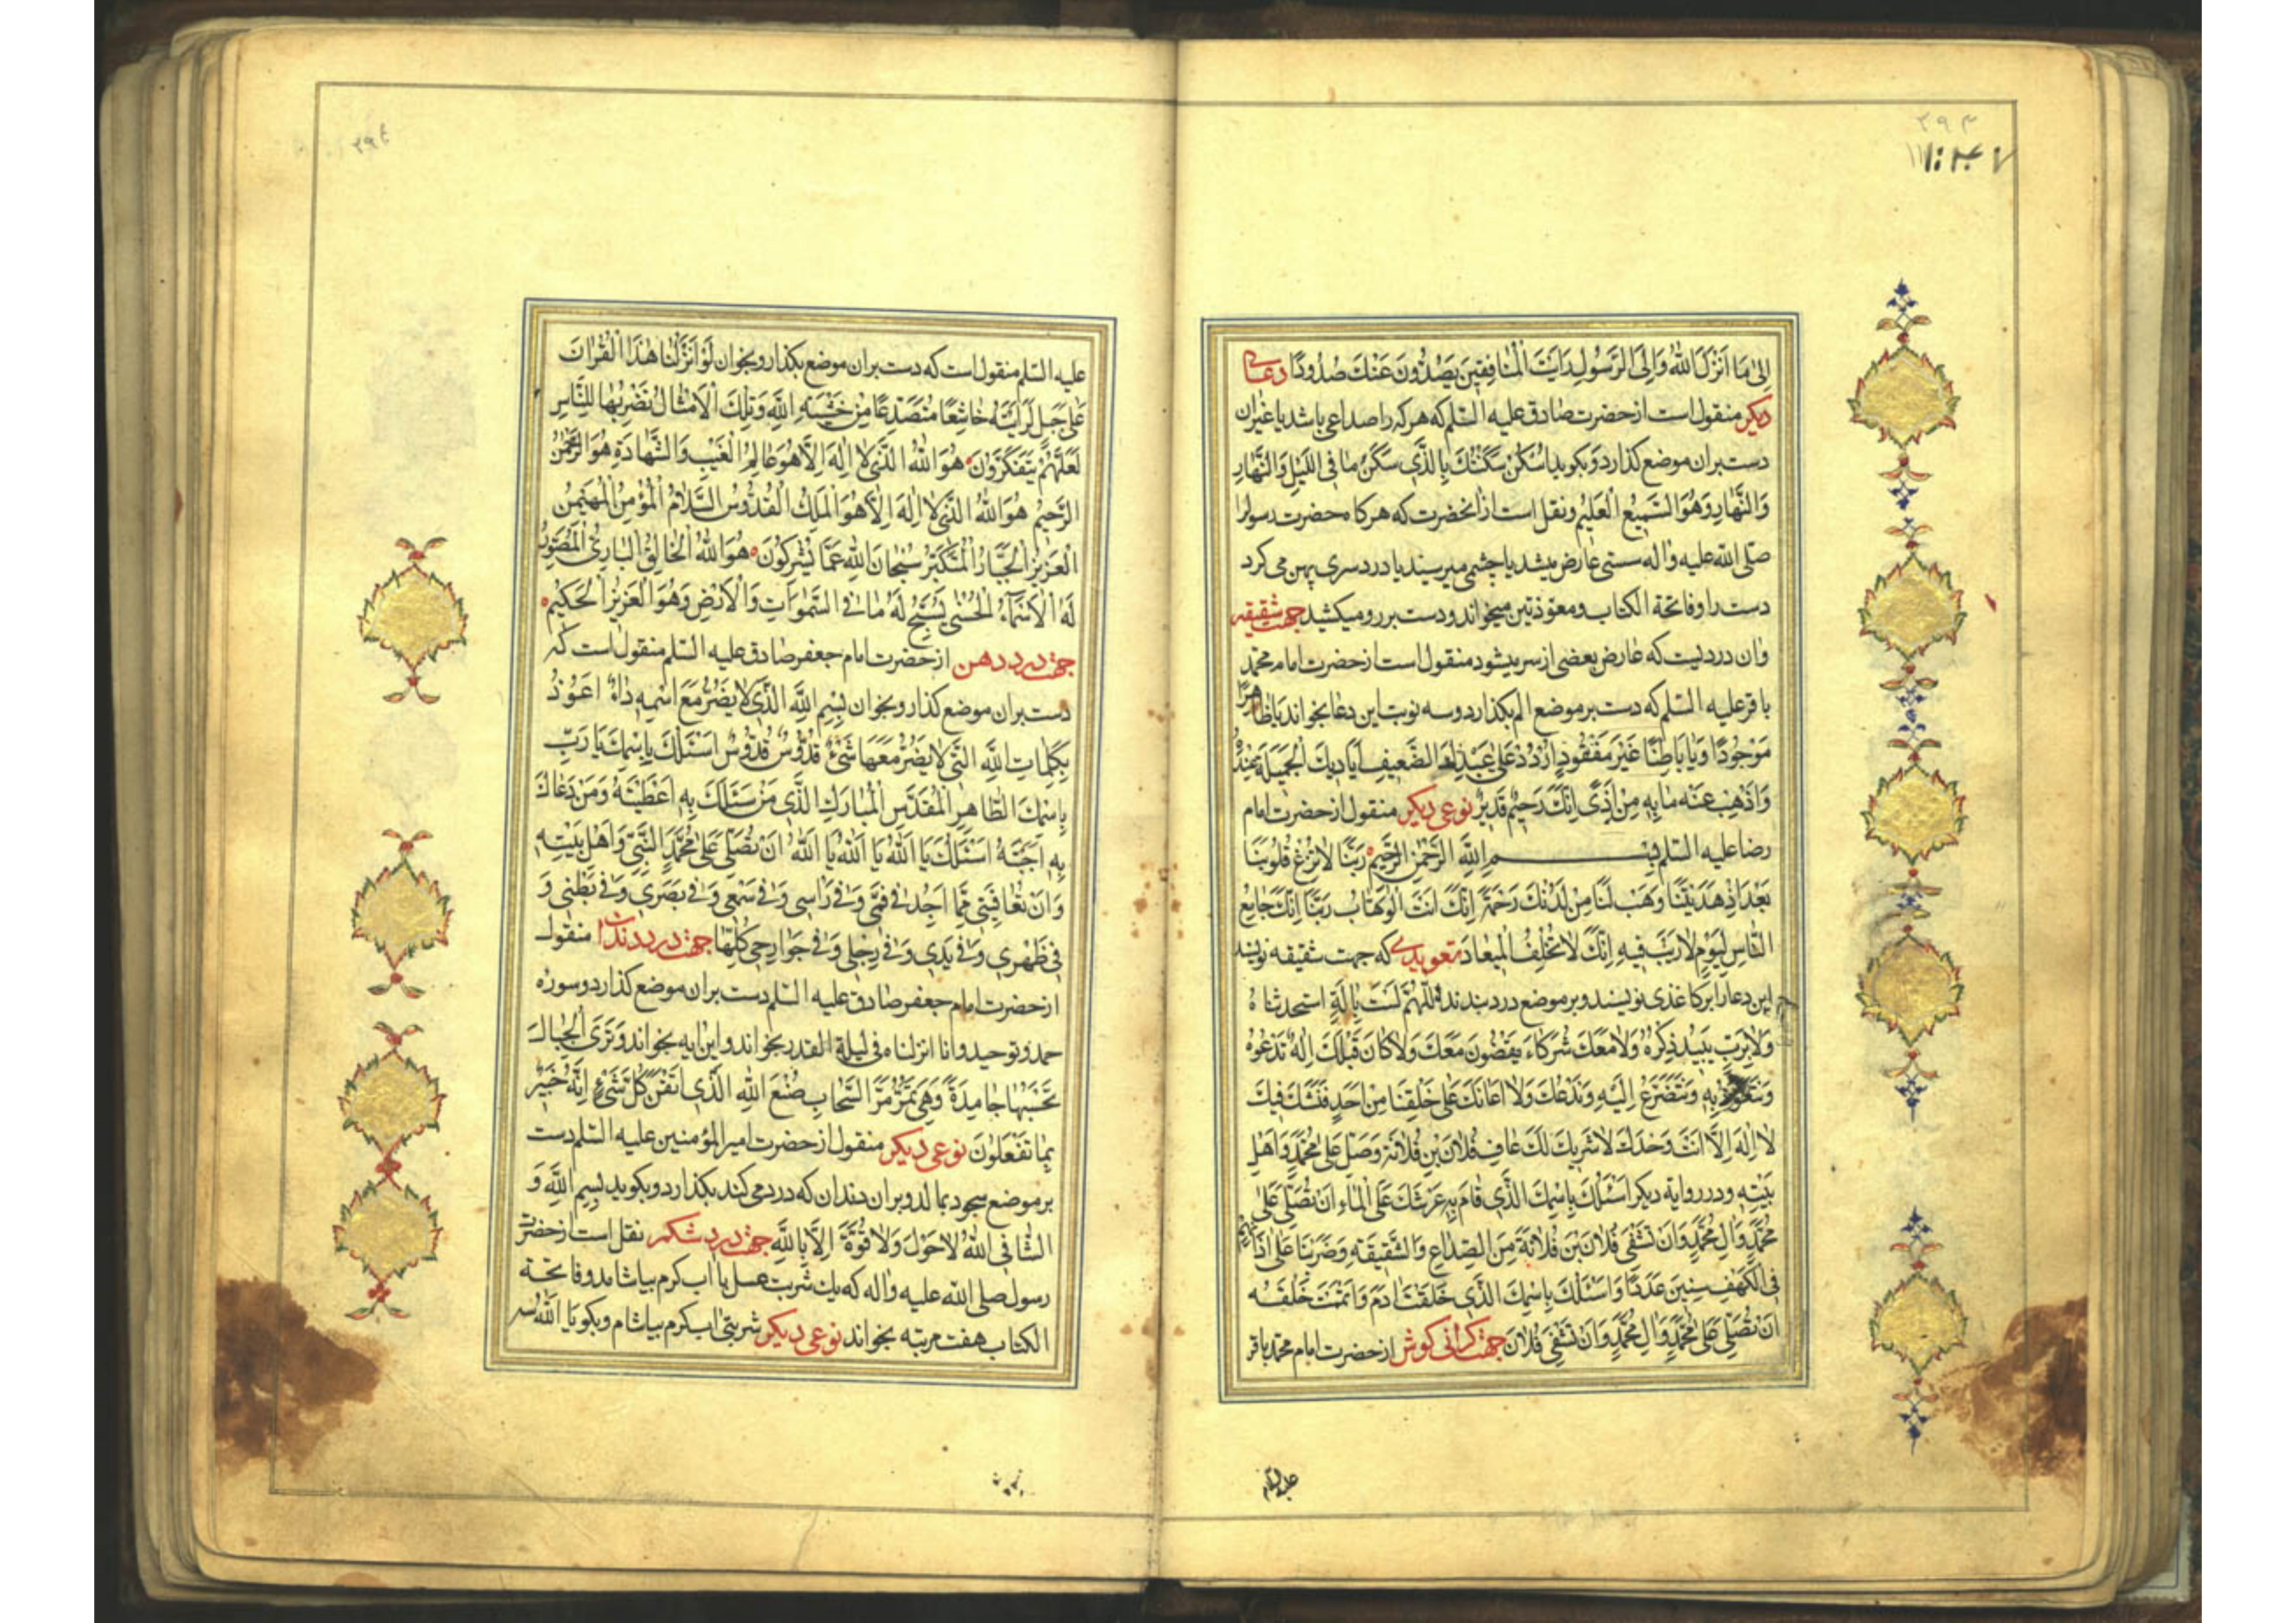 ۳۹۳
اِلیٰ مَا اَنْزَلَ اللهُ وَاِلَی الرَّسُولِ رَاَیْتَ الْمُنَافِقِینَ یَصُدُّونَ عَنْكَ صُدُودًا دعای
دیکر منقول است از حضرت صادق علیه السّلم که هر که را صداعی باشد یا غیر ان
دست بران موضع گذارد و بکوید اُسْکُنْ سَکَّنْتُكَ بِالَّذِی سَکَنَ مَا فِی اللَّیْلِ وَالنَّهَارِ
وَالنَّهَارِ وَهُوَ السَّمِیعُ الْعَلِیمُ و نقل است از انحضرت که هر کاه حضرت رسول را
صلّی الله علیه و اله سستی عارض میشد یا چشمی میرسید یا درد سری پهن می کرد
دست را و فاتحة الکتاب و معوّذتین میخواند و دست بر رو میکشید جهت شقیقه
وان دردیست که عارض بعضی از سر میشود منقول است از حضرت امام محمّد
باقر علیه السّلم که دست بر موضع الم بکذارد و سه نوبت این دعا بخواند یَا ظَاهِرًا
مَوْجُودًا وَیَا بَاطِنًا غَیْرَ مَفْقُودٍ اُرْدُدْ عَلیٰ عَبْدِكَ الضَّعِیفِ اَیَادِیكَ الْجَمِیلَةَ عِنْدَهُ
وَاَذْهِبْ عَنْهُ مَا بِهِ مِنْ اَذًی اِنَّكَ رَحِیمٌ قَدِیرٌ نوعی دیکر منقول از حضرت امام
رضا علیه السّلم بِسْمِ اللَّهِ الرَّحْمٰنِ الرَّحِیمِ رَبَّنَا لَا تُزِغْ قُلُوبَنَا
بَعْدَ اِذْ هَدَیْتَنَا وَهَبْ لَنَا مِنْ لَدُنْكَ رَحْمَةً اِنَّكَ اَنْتَ الْوَهَّابُ رَبَّنَا اِنَّكَ جَامِعُ
النَّاسِ لِیَوْمٍ لَا رَیْبَ فِیهِ اِنَّكَ لَا تُخْلِفُ الْمِیعَادَ تعویذی که جهت شقیقه نویسند
این دعا را بر کاغذی نویسند و بر موضع درد بندند اللّٰهُمَّ لَسْتَ بِاِلٰهٍ استحدثناه
وَلَا بِرَبٍّ یَبِیدُ ذِکْرُهُ وَلَا مَعَكَ شُرَکَاءُ یَقْضُونَ مَعَكَ وَلَا کَانَ قَبْلَكَ اِلٰهٌ نَدْعُوهُ
وَنَتَعَوَّذُ بِهِ وَنَتَضَرَّعُ اِلَیْهِ وَنَدَعُكَ وَلَا اَعَانَكَ عَلیٰ خَلْقِنَا مِنْ اَحَدٍ فَنَشُكَّ فِیكَ
لَا اِلٰهَ اِلَّا اَنْتَ وَحْدَكَ لَا شَرِیكَ لَكَ عَافِ فُلَانَ بْنَ فُلَانَةَ وَصَلِّ عَلیٰ مُحَمَّدٍ وَاَهْلِ
بَیْتِهِ و در روایة دیکر اَسْئَلُكَ بِاسْمِكَ الَّذِی قَامَ بِهِ عَرْشُكَ عَلَی الْمَاءِ اَنْ تُصَلِّیَ عَلیٰ
مُحَمَّدٍ وَآلِ مُحَمَّدٍ وَاَنْ تَشْفِیَ فُلَانَ بْنَ فُلَانَةَ مِنَ الصُّدَاعِ وَالشَّقِیقَةِ وَضَرَبْنَا عَلیٰ اٰذَانِهِمْ
فِی الْکَهْفِ سِنِینَ عَدَدًا وَاَسْئَلُكَ بِاسْمِكَ الَّذِی خَلَقْتَ اٰدَمَ وَاَتْمَمْتَ خَلْقَهُ
اَنْ تُصَلِّیَ عَلیٰ مُحَمَّدٍ وَاٰلِ مُحَمَّدٍ وَاَنْ تَشْفِیَ فُلَانَ جهت کرانی کوش از حضرت امام محمّد باقر
علیه السّلم
۳۹۴
علیه السّلم منقول است که دست بران موضع بکذار و بخوان لَوْ اَنْزَلْنَا هٰذَا الْقُرْاٰنَ
عَلیٰ جَبَلٍ لَرَاَیْتَهُ خَاشِعًا مُتَصَدِّعًا مِنْ خَشْیَةِ اللَّهِ وَتِلْكَ الْاَمْثَالُ نَضْرِبُهَا لِلنَّاسِ
لَعَلَّهُمْ یَتَفَکَّرُونَ هُوَ اللّٰهُ الَّذِی لَا اِلٰهَ اِلَّا هُوَ عَالِمُ الْغَیْبِ وَالشَّهَادَةِ هُوَ الرَّحْمٰنُ
الرَّحِیمُ هُوَ اللّٰهُ الَّذِی لَا اِلٰهَ اِلَّا هُوَ الْمَلِكُ الْقُدُّوسُ السَّلَامُ الْمُؤْمِنُ الْمُهَیْمِنُ
الْعَزِیزُ الْجَبَّارُ الْمُتَکَبِّرُ سُبْحَانَ اللّٰهِ عَمَّا یُشْرِکُونَ هُوَ اللّٰهُ الْخَالِقُ الْبَارِئُ الْمُصَوِّرُ
لَهُ الْاَسْمَاءُ الْحُسْنیٰ یُسَبِّحُ لَهُ مَا فِی السَّمٰوَاتِ وَالْاَرْضِ وَهُوَ الْعَزِیزُ الْحَکِیمُ
جهت درد دهن از حضرت امام جعفر صادق علیه السّلم منقول است که
دست بران موضع گذار و بخوان بِسْمِ اللَّهِ الَّذِی لَا یَضُرُّ مَعَ اسْمِهِ دَاءٌ اَعُوذُ
بِکَلِمَاتِ اللَّهِ الَّتِی لَا یَضُرُّ مَعَهَا شَیْءٌ قُدُّوسٌ قُدُّوسٌ اَسْئَلُكَ بِاسْمِكَ یَا رَبِّ
بِاسْمِكَ الطَّاهِرِ الْمُقَدَّسِ الْمُبَارَكِ الَّذِی مَنْ سَئَلَكَ بِهِ اَعْطَیْتَهُ وَمَنْ دَعَاكَ
بِهِ اَجَبْتَهُ اَسْئَلُكَ یَا اَللّٰهُ یَا اَللّٰهُ یَا اَللّٰهُ اَنْ تُصَلِّیَ عَلیٰ مُحَمَّدٍ النَّبِیِّ وَاَهْلِ بَیْتِهِ
وَاَنْ تُعَافِیَنِی مِمَّا اَجِدُ فِی فَمِی وَفِی رَاْسِی وَفِی سَمْعِی وَفِی بَصَرِی وَفِی بَطْنِی وَ
فِی ظَهْرِی وَفِی یَدِی وَفِی رِجْلِی وَفِی جَوَارِحِی کُلِّهَا جهت درد دندان منقول
از حضرت امام جعفر صادق علیه السّلم دست بران موضع گذارد و سوره
حمد و توحید و انا انزلناه فی لیلة القدر بخواند و این ایه بخواند وَتَرَی الْجِبَالَ
تَحْسَبُهَا جَامِدَةً وَهِیَ تَمُرُّ مَرَّ السَّحَابِ صُنْعَ اللّٰهِ الَّذِی اَتْقَنَ کُلَّ شَیْءٍ اِنَّهُ خَبِیرٌ
بِمَا تَفْعَلُونَ نوعی دیکر منقول از حضرت امیر المؤمنین علیه السّلم دست
بر موضع سجود بمالد و بران دندان که درد می کند بکذارد و بکوید بِسْمِ اللَّهِ وَ
الشَّافِی اللّٰهُ لَا حَوْلَ وَلَا قُوَّةَ اِلَّا بِاللَّهِ جهت درد شکم نقل است از حضرت
رسول صلی الله علیه و اله که یك شربت عسل با اب کرم بیاشامد و فاتحة
الکتاب هفت مرتبه بخواند نوعی دیکر شربتی اب کرم بیاشام و بکو یَا اَللّٰهُ سه